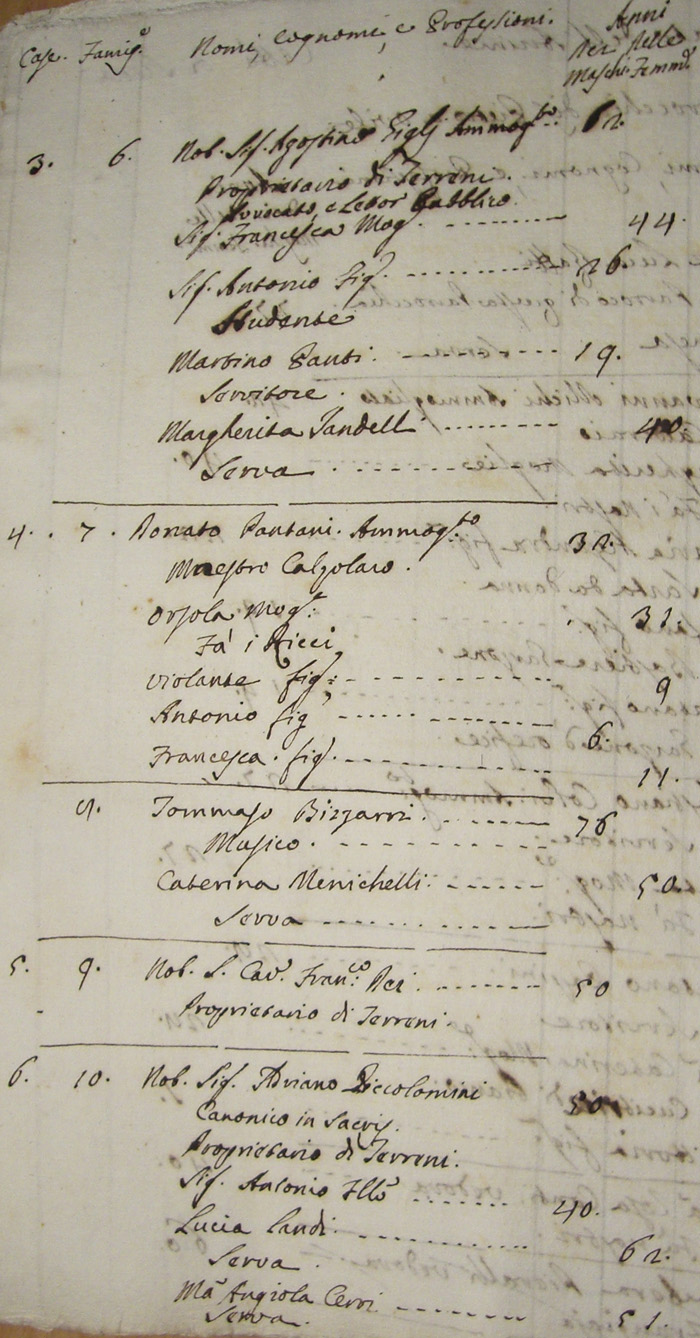 Case. Famig.e Nomi, cognomi, e Professioni. Anni
Dei Delle
Maschi. Femm.e
3. 6. Nob. Sig. Agostino Giglj Ammog.to 62.
Proprietario di Terreni.
Avvocato, e Letor Pubblico
Sig. Francesca Mog. 44.
Sig. Antonio Fig. 26.
Studente
Martino Santi. 19.
Servitore.
Margherita Landelli 40.
Serva
4. 7. Donato Pantani. Ammog.to 32.
Maestro Calzolaro.
Orsola Mog.e 31.
Fa' i Ricci
Violante fig. 9
Antonio fig. 6.
Francesca. fig. 11.
Tommaso Bizzarri. 76
Musico.
Caterina Menichelli. 50.
Serva
5. 9. Nob. S. Cav. Fran.co Pei. 50
Proprietario di Terreni.
6. 10. Nob. Sig. Adriano Piccolomini 50.
Canonico in Sacris.
Proprietario di Terreni.
Sig. Antonio 40.
Lucia Landi. 62.
Serva.
Ma Angiola Cerri 51.
Serva.